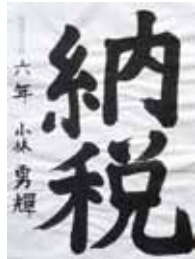 納税
六年 小林 勇輝